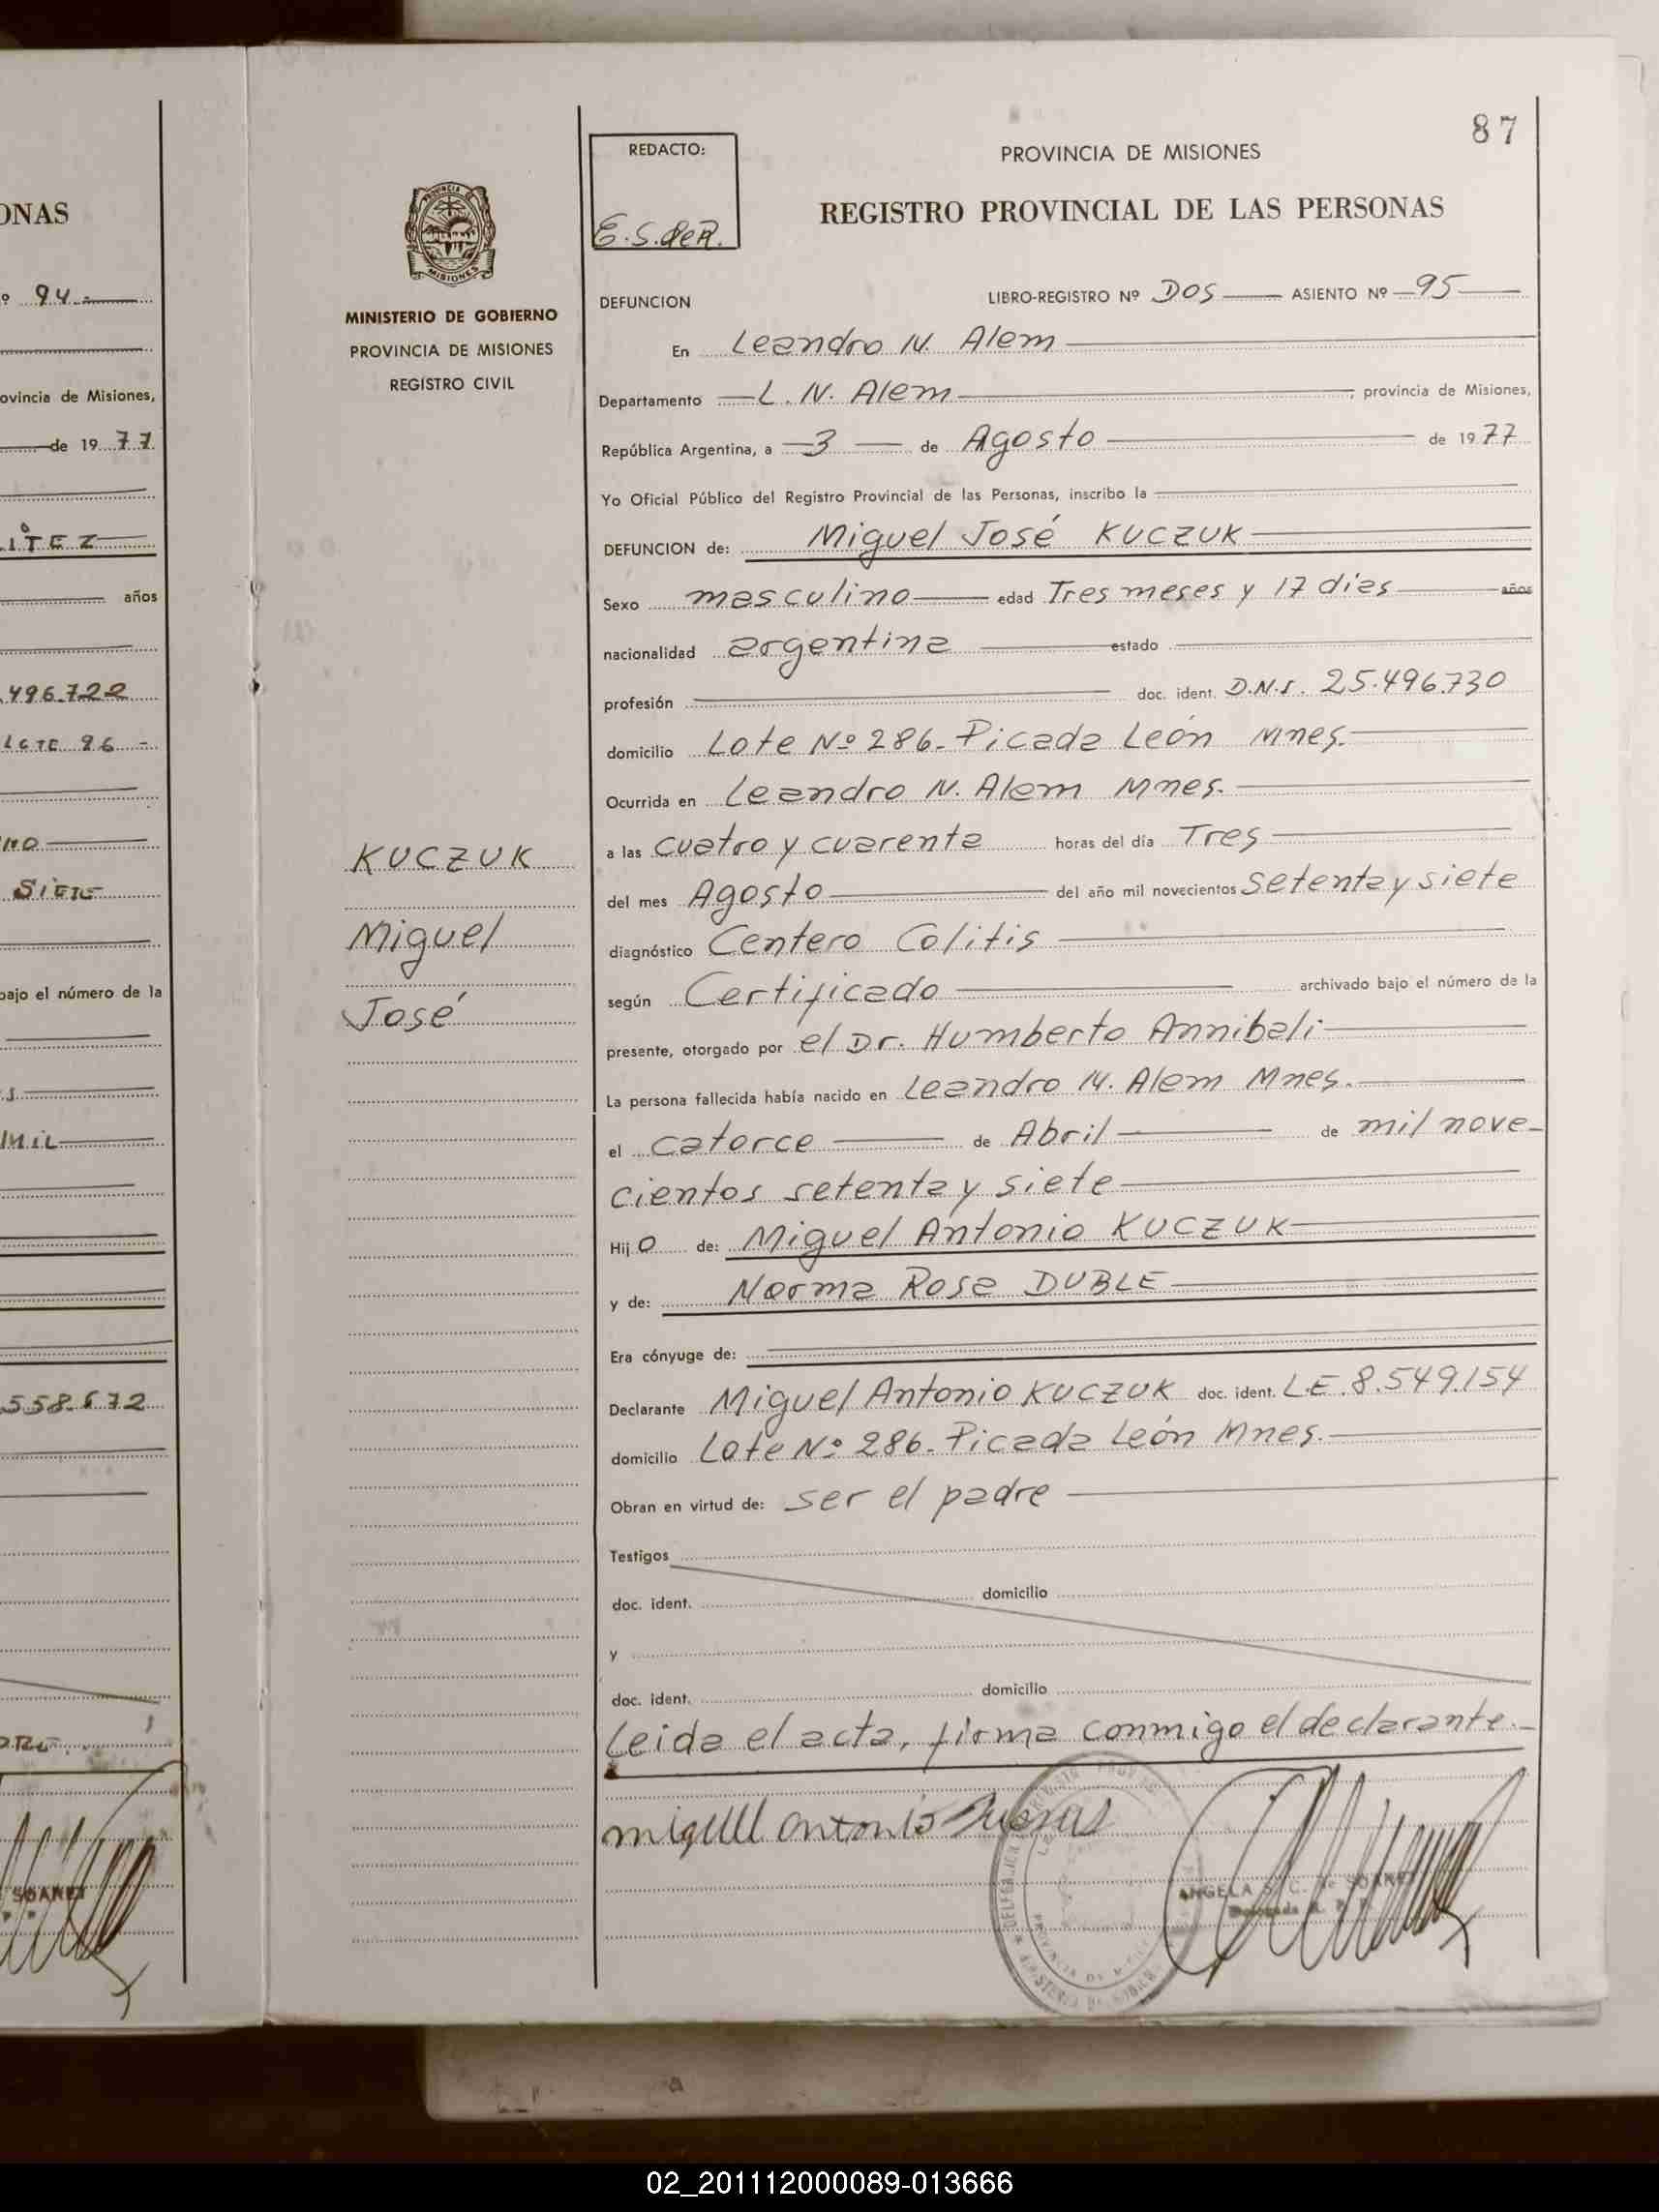 ONAS
º 94
ovincia de Misiones,
de 1977
ITEZ
años
.496.722
LOTE 96 -
SIETE
bajo el número de la
MIL
558.672
SOAREZ
MINISTERIO DE GOBIERNO
PROVINCIA DE MISIONES
REGISTRO CIVIL
KUCZUK
Miguel
José
87
REDACTO:
E.S.deR.
PROVINCIA DE MISIONES
REGISTRO PROVINCIAL DE LAS PERSONAS
DEFUNCION LIBRO-REGISTRO Nº DOS ASIENTO Nº 95
En Leandro N. Alem
Departamento L. N. Alem , provincia de Misiones,
República Argentina, a 3 de Agosto de 1977
Yo Oficial Público del Registro Provincial de las Personas, inscribo la
DEFUNCION de: Miguel José KUCZUK
Sexo masculino edad Tres meses y 17 días años
nacionalidad argentina estado
profesión doc. ident. D.N.I. 25.496.730
domicilio Lote Nº 286. Picada León Mnes.
Ocurrida en Leandro N. Alem Mnes.
a las cuatro y cuarenta horas del día Tres
del mes Agosto del año mil novecientos setenta y siete
diagnóstico Centero Colitis
según Certificado archivado bajo el número de la
presente, otorgado por el Dr. Humberto Annibali
La persona fallecida había nacido en Leandro N. Alem Mnes.
el catorce de Abril de mil nove-
cientos setenta y siete
Hijo de: Miguel Antonio KUCZUK
y de: Norma Rosa DUBLE
Era cónyuge de:
Declarante Miguel Antonio KUCZUK doc. ident. L.E. 8.549.154
domicilio Lote Nº 286. Picada León Mnes.
Obran en virtud de: ser el padre
Testigos
doc. ident. domicilio
y
doc. ident. domicilio
Leida el acta, firma conmigo el declarante.-
miguel antonio
ANGELA S. C. de SOAREZ
Delegada R. P. P.
02_201112000089-013666